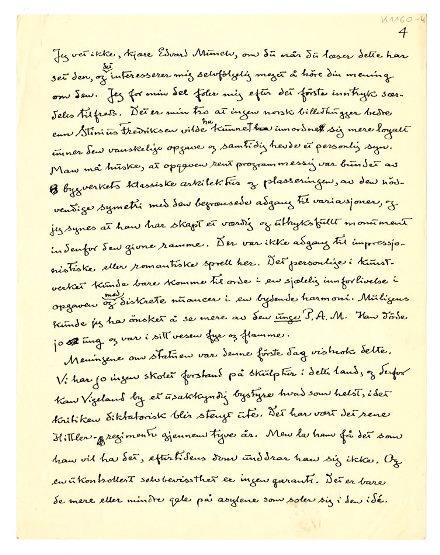 K1160-4
4
Jeg vet ikke, kjære Edvard Munch, om du når du læser dette har
set den, og det interesserer mig selvfølgelig meget å høre din mening
om den. Jeg for min del føler mig efter det første inntrykk sær-
deles tilfreds. Det er min tro at ingen norsk billedhugger bedre
enn Stinius Fredriksen vilde ha kunnet innordnet sig mere loyalt
under den vanskelige opgave og samtidig hevdet et personlig syn.
Man må huske, at opgaven rent programmessig var bundet av
bygverkets klassiske arkitektur og plasseringen, av den nød-
vendige symetri med den begrænsede adgang til variasjoner, og
jeg synes at han har skapt et værdig og uttryksfullt monument
indenfor den givne ramme. Der var ikke adgang til impressjo-
nistiske eller romantiske sprell her. Det personlige i kunst-
verket kunde bare komme til orde i en sjælelig innforlivelse i
opgaven og med diskrete nuancer i en bydende harmoni. Muligens
kunde jeg ha ønsket å se mere av den unge P. A. M. Han døde
jo ung og var i sitt vesen fyr og flamme.
Meningene om statuen var denne første dag visstnok delte.
Vi har jo ingen skolet forstand på skulptur i dette land, og derfor
kan Vigeland by et usakkyndig bystyre hvad som helst, idet
kritiken diktatorisk blir stengt ute. Det har vært det rene
Hitler-regimente gjennem tyve år. Men la han få det som
han vil ha det, eftertidens dom unddrar han sig ikke. Og
en ukontrollert selvbevissthet er ingen garanti. Det er bare
de mere eller mindre gale på asylene som soler sig i den idé.